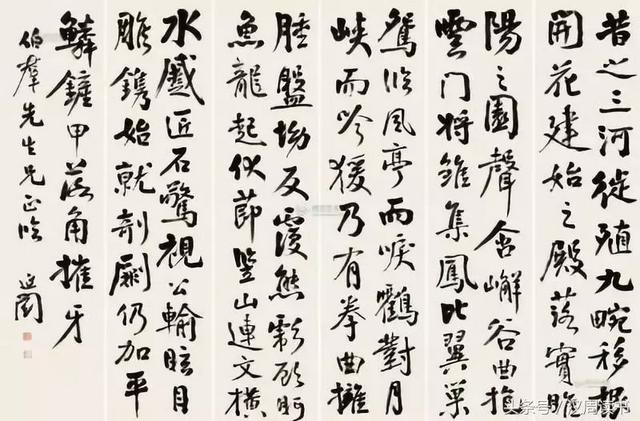 昔之三河徙殖九畹移根
開花建始之殿落實睢
陽之園聲含嶰谷曲抱
雲門將雛集鳳比翼巢
鴛臨風亭而唳鸛對月
峽而吟猿乃有拳曲擁
腫盤坳反覆熊彪顧盼
魚龍起伏節豎山連文橫
水蹙匠石驚視公輸眩目
雕鐫始就剞劂仍加平
鱗鏟甲落角摧牙
伯羣先生兄正 延闓
头条号